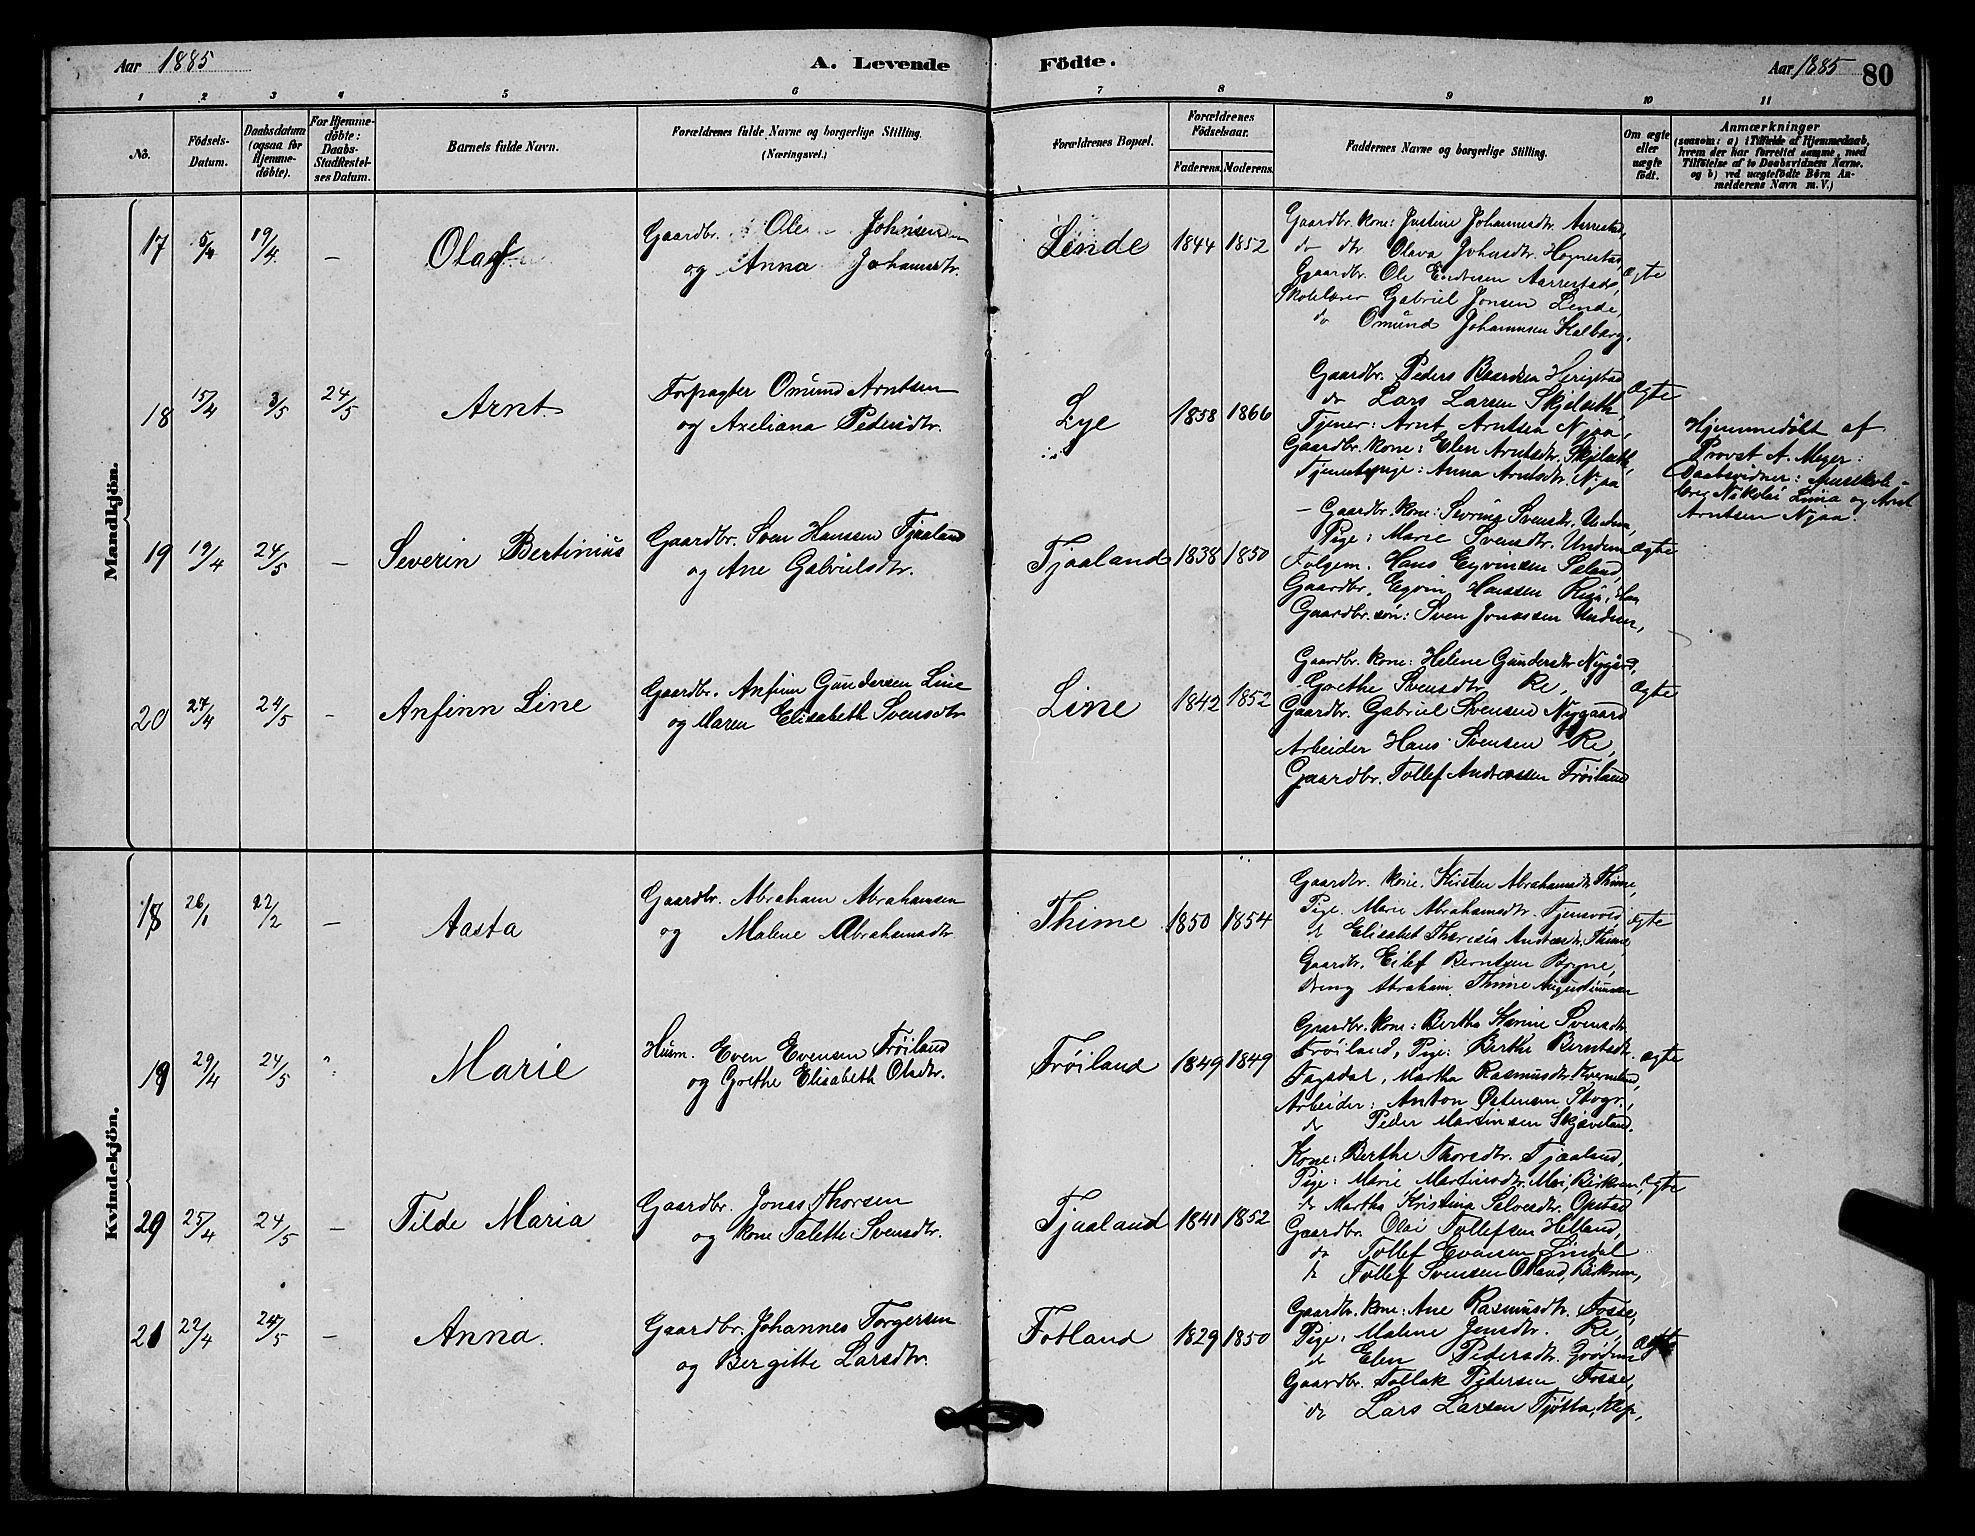 Aar 1885
A. Levende
Födte.
Aar 1885 80
1 2 3 4 5 6 7 8 9 10 11
No.
Födsels-
Datum.
Daabsdatum
(ogsaa for
Hjemme-
döbte).
For Hjemme-
döbte:
Daabs-
Stadfæstel-
ses Datum.
Barnets fulde Navn.
Forældrenes fulde Navne og borgerlige Stilling.
(Næringsvei.)
Forældrenes Bopæl.
Forældrenes
Födselsaar.
Faderens. Moderens.
Faddernes Navne og borgerlige Stilling.
Om ægte
eller
uægte
födt.
Anmærkninger
(saasom: a) i Tilfælde af Hjemmedaab,
hvem der har forrettet samme, med
Tilföielse af to Daabsvidners Navne.
og b) ved uægtefödte Börn An-
melderens Navn m. V.)
Mandkjön.
17 5/4 19/4 – Olaf
Gaardbr. Ole Johnsen
og Anna Johannsdtr.
Lende 1844 1852
Gaardbr. kone: Justine Johannesdtr. Aarrestad,
do do Olava Johnsdtr. Hognestad,
Gaardbr. Ole Endresen Aarrestad,
Skolelærer Gabriel Jonsen Lende,
do Omund Johannsen Kalberg.
ægte
18 15/4 3/5 24/5 Arnt
Forpagter Omund Arntsen
og Axeliana Pedersdtr.
Lye 1858 1866
Gaardbr. Peders Baardsen Herigstad
do Lars Larsen Skjelæth,
Tjener: Arnt Arntsen Njaa,
Gaardbr. kone: Elen Arntsdtr. Skjelæth,
Tjenestepige: Anna Arntsdtr. Njaa
ægte
Hjemmedöbt af
Provst A. Meyer:
Daabsvidner:
Nikolai Lima og Arnt
Arntsen Njaa.
19 19/4 24/5 – Severin Bertinius
Gaardbr. Sven Hanssen Tjaaland
og Ane Gabrielsdtr.
Tjaaland 1838 1850
– Gaardbr. kone: Sevrine Svensdtr. Undem,
Pige: Marie Svensdtr. Undem
Folgem. Hans Eyvinsen Sæland,
Gaardbr. Eyvin Hanssen Risa,
Gaardbr. sön: Sven Jonassen Undem,
ægte
20 27/4 24/5 – Anfinn Line
Gaardbr. Anfinn Gundersen Line
og Maren Elisabeth Svensdtr
Line 1842 1852
Gaardbr. kone: Helene Gundersdtr Nygård,
Goethe Svensdtr. Re,
Gaardbr. Gabriel Svensen Nygaard
Arbeider Hans Svensen Re,
Gaardbr. Tollef Andreassen Fröiland
ægte
Kvindekjön.
18 26/1 22/2 – Aasta
Gaardbr. Abraham Abrahamsen
og Malene Abrahamsdtr.
Thime 1850 1854
Gaardbr. kone. Kirsten Abrahamsdtr Thime,
Pige. Marie Abrahamsdtr. Tjensvold,
do Elisabet Theresia Andreasdtr. Thime,
Gaardbr. Eilef Berntsen Bryne,
Dreng Abraham Thime Augustinussen
ægte
19 29/4 24/5 " Marie
Husm. Even Evensen Fröiland
og Goethe Elisabeth Olsdtr.
Fröiland 1849 1849
Gaardbr. kone: Bertha Karine Svensdtr.
Fröiland, Pige: Berthe Berntsdtr.
Fagsdal, Martha Rasmusdtr. Kverneland,
Arbeider: Anton Østensen
do Peder Martinsen Skjæveland.
ægte
20 25/4 24/5 – Tilde Maria
Gaardbr. Jonas Thorsen
og kone Talette Svensdtr.
Tjaaland 1841 1852
Kone: Berthe Thorsdtr. Tjaaland,
Pige: Marie Martinsdtr. Moi, Birkrem,
do Martha Kristina Salvesdtr. Opstad
Gaardbr. Olai Tollefsen Helland,
do Tollef Evensen Lindal
do Tollef Svensen Birkrem,
ægte
21 22/4 24/5 – Anna.
Gaardbr. Johannes Torgersen
og Bergitte Larsdtr.
Fotland 1829 1850
Gaardbr. kone: Ane Rasmusdtr. Fosse,
Pige: Malene Jensdtr. Re,
do Elen Pedersdtr.
Gaardbr. Tollak Pedersen Fosse,
do Lars Larsen Tjøtta, Klep,
ægte